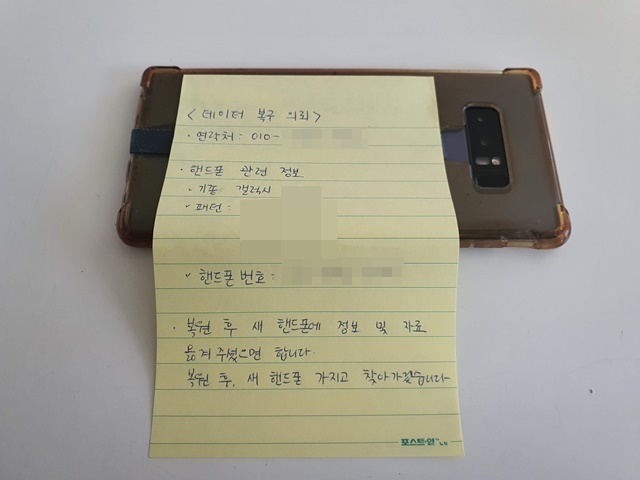 < 데이터 복구 의뢰 >
· 연락처 : 010-
· 핸드폰 관련 정보
· 기종: 갤럭시
✓ 패턴 :
✓ 핸드폰 번호 :
· 복원 후 새 핸드폰에 정보 및 자료
옮겨 주셨으면 합니다.
복원 후, 새 핸드폰 가지고 찾아가겠습니다
포스트-잇™ 노트